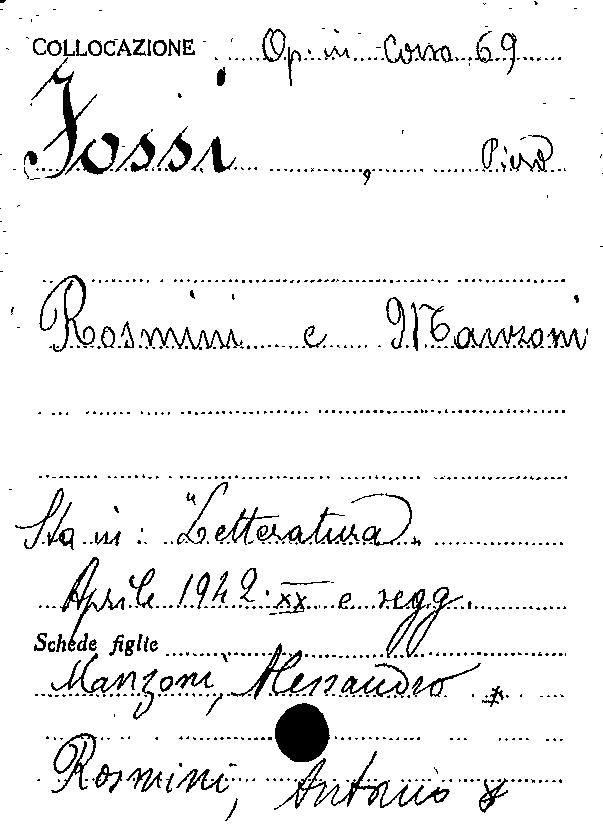 COLLOCAZIONE Op. in corso 69
Fossi, Piero
Rosmini e Manzoni
Sta in: "Letteratura".
Aprile 1942. XX e segg.
Schede figlie
Manzoni, Alessandro *
Rosmini, Antonio *